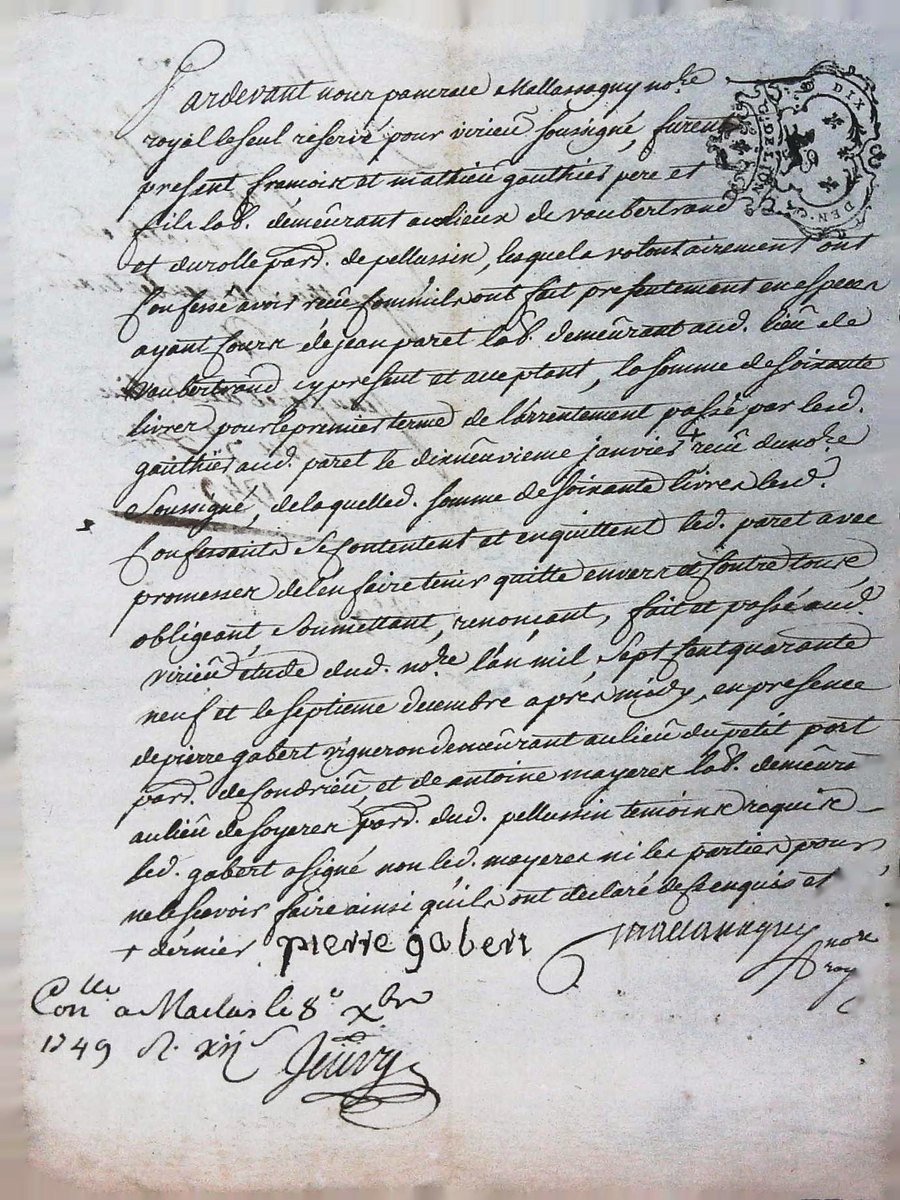 Pardevant nous pancrace Mallassagny no.re
royal le seul réservé pour virieu soussigné, furent
present francois et mathieu gauthier pere et
fils lab. demeurant au lieux de vaubertrand
et du rolle par.d de pellussin, lesquels volontairement ont
confessé avoir recu comm'ils ont fait presentement en especes
ayant cours de jean paret lab. demeurant aud. lieu de
vaubertrand cy present et acceptant, la somme de soixante
livres pour le premier terme de l'arrentement passé par lesd.
gauthier aud. paret le dixneuvieme janvier + recu du no.re
soussigné, de laquelle d. somme de soixante livres lesd.
confessants se contentent et en quittent led. paret avec
promesse de l'en faire tenir quitte envers et contre tous
obligeant, soumettant, renonçant, fait et passé aud.
virieu étude dud. no.re l'an mil sept cent quarante
neuf et le septieme decembre apres midy, en presence
de pierre gabert vigneron demeurant au lieu du petit port
par.d de condrieu, et de antoine mayeres lab. demeura
au lieu de soyeres par.d dud. pellussin temoins requis
led. gabert a signé non led. mayeres ni les parties pour
ne le scavoir faire ainsi qu'ils ont declaré de ce enquis et
+ dernier pierre gabert mallassagny no.re
roy
Con.lle a Maclas le 8.e x.bre
1749 R. xij s
DIX
DEN.